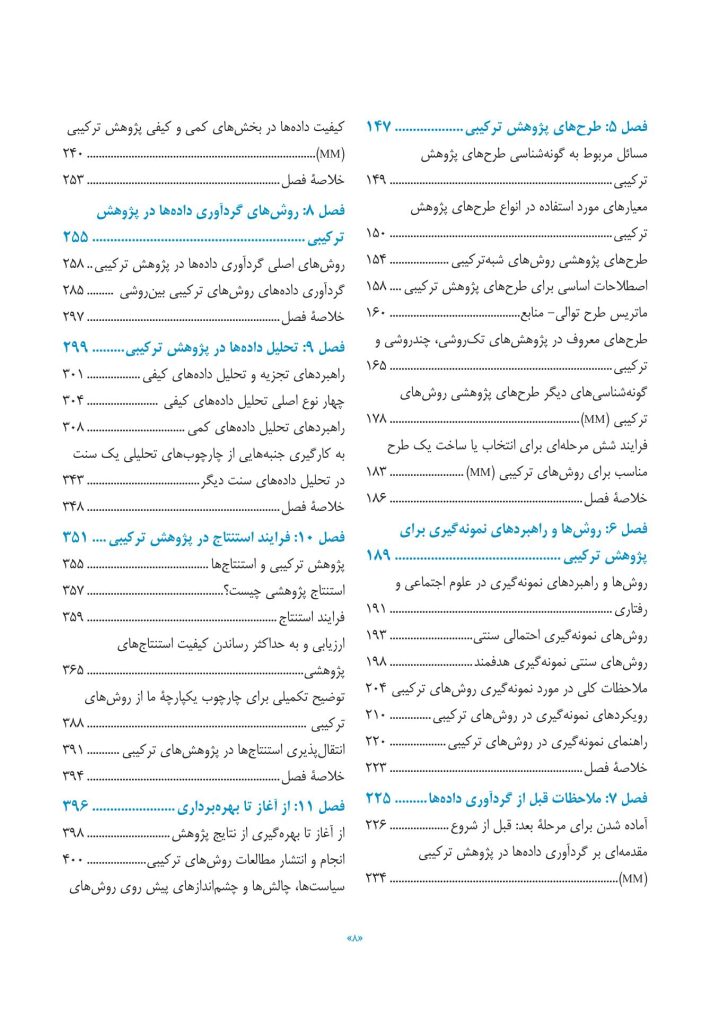 فصل ۵: طرح‌های پژوهش ترکیبی ................... ۱۴۷
مسائل مربوط به گونه‌شناسی طرح‌های پژوهش
ترکیبی ........................................................................... ۱۴۹
معیارهای مورد استفاده در انواع طرح‌های پژوهش
ترکیبی ........................................................................... ۱۵۰
طرح‌های پژوهشی روش‌های شبه‌ترکیبی .................... ۱۵۴
اصطلاحات اساسی برای طرح‌های پژوهش ترکیبی .... ۱۵۸
ماتریس طرح توالی- منابع............................................ ۱۶۰
طرح‌های معروف در پژوهش‌های تک‌روشی، چندروشی و
ترکیبی ........................................................................... ۱۶۵
گونه‌شناسی‌های دیگر طرح‌های پژوهشی روش‌های
ترکیبی (MM) ................................................................ ۱۷۸
فرایند شش مرحله‌ای برای انتخاب یا ساخت یک طرح
مناسب برای روش‌های ترکیبی (MM) ......................... ۱۸۳
خلاصهٔ فصل ................................................................. ۱۸۶
فصل ۶: روش‌ها و راهبردهای نمونه‌گیری برای
پژوهش ترکیبی .............................................. ۱۸۹
روش‌ها و راهبردهای نمونه‌گیری در علوم اجتماعی و
رفتاری ........................................................................... ۱۹۱
روش‌های نمونه‌گیری احتمالی سنتی............................ ۱۹۳
روش‌های سنتی نمونه‌گیری هدفمند ............................ ۱۹۸
ملاحظات کلی در مورد نمونه‌گیری روش‌های ترکیبی ۲۰۴
رویکردهای نمونه‌گیری در روش‌های ترکیبی .............. ۲۱۰
راهنمای نمونه‌گیری در روش‌های ترکیبی ................... ۲۲۰
خلاصهٔ فصل ................................................................. ۲۲۳
فصل ۷: ملاحظات قبل از گردآوری داده‌ها......... ۲۲۵
آماده شدن برای مرحلهٔ بعد: قبل از شروع .................... ۲۲۶
مقدمه‌ای بر گردآوری داده‌ها در پژوهش ترکیبی
(MM) ............................................................................. ۲۳۴
کیفیت داده‌ها در بخش‌های کمی و کیفی پژوهش ترکیبی
(MM) ............................................................................. ۲۴۰
خلاصهٔ فصل ................................................................. ۲۵۳
فصل ۸: روش‌های گردآوری داده‌ها در پژوهش
ترکیبی ........................................................... ۲۵۵
روش‌های اصلی گردآوری داده‌ها در پژوهش ترکیبی .. ۲۵۸
گردآوری داده‌های روش‌های ترکیبی بین‌روشی ......... ۲۸۵
خلاصهٔ فصل ................................................................. ۲۹۷
فصل ۹: تحلیل داده‌ها در پژوهش ترکیبی......... ۲۹۹
راهبردهای تجزیه و تحلیل داده‌های کیفی .................. ۳۰۱
چهار نوع اصلی تحلیل داده‌های کیفی ........................ ۳۰۴
راهبردهای تحلیل داده‌های کمی ................................. ۳۰۸
به کارگیری جنبه‌هایی از چارچوب‌های تحلیلی یک سنت
در تحلیل داده‌های سنت دیگر...................................... ۳۴۳
خلاصهٔ فصل ................................................................. ۳۴۸
فصل ۱۰: فرایند استنتاج در پژوهش ترکیبی .... ۳۵۱
پژوهش ترکیبی و استنتاج‌ها ......................................... ۳۵۵
استنتاج پژوهشی چیست؟.............................................. ۳۵۷
فرایند استنتاج ................................................................ ۳۵۹
ارزیابی و به حداکثر رساندن کیفیت استنتاج‌های
پژوهشی......................................................................... ۳۶۵
توضیح تکمیلی برای چارچوب یکپارچهٔ ما از روش‌های
ترکیبی .......................................................................... ۳۸۸
انتقال‌پذیری استنتاج‌ها در پژوهش‌های ترکیبی ........... ۳۹۱
خلاصهٔ فصل ................................................................. ۳۹۴
فصل ۱۱: از آغاز تا بهره‌برداری ....................... ۳۹۶
از آغاز تا بهره‌گیری از نتایج پژوهش ............................ ۳۹۸
انجام و انتشار مطالعات روش‌های ترکیبی.................... ۴۰۰
سیاست‌ها، چالش‌ها و چشم‌اندازهای پیش روی روش‌های
«۸»